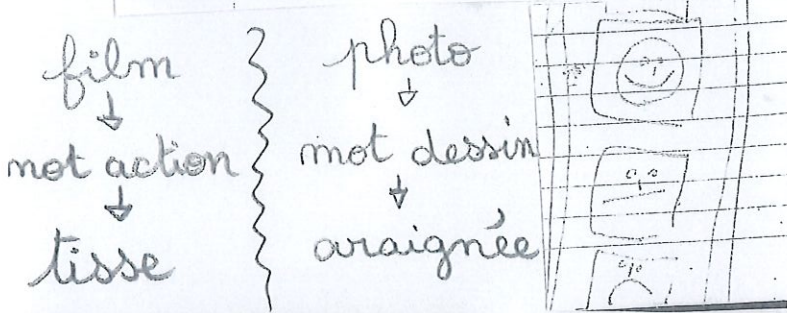 film
↓
mot action
↓
tisse
photo
↓
mot dessin
↓
araignée